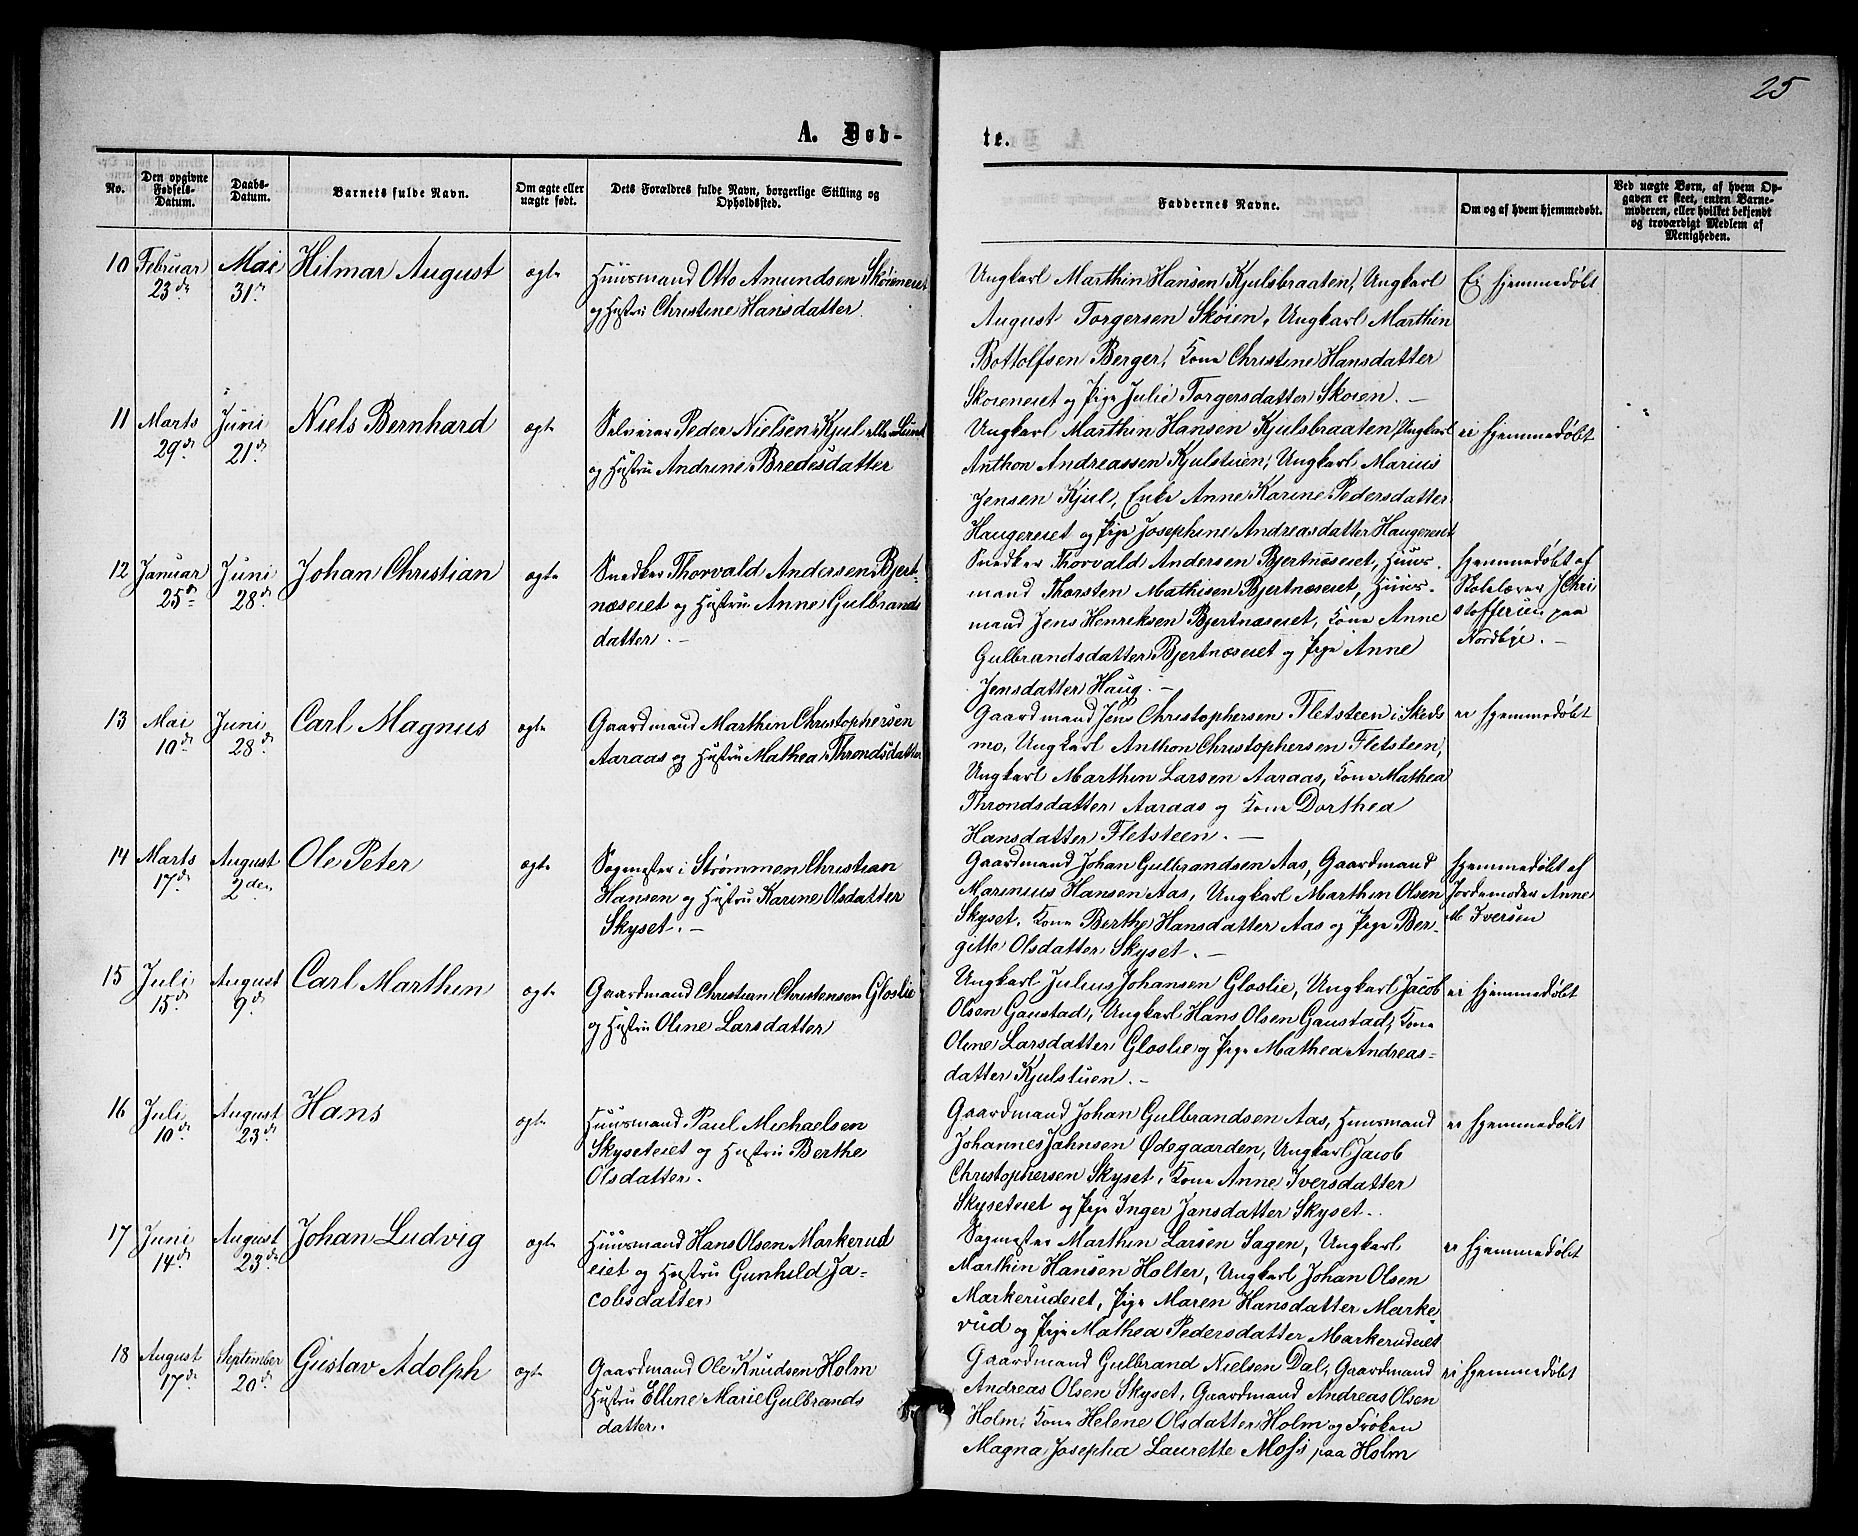 25
A. Døb-
te.
No.
Den opgivne Fødsels-Datum.
Daabs-Datum.
Barnets fulde Navn.
Om ægte eller uægte født.
Dets Forældres fulde Navn, borgerlige Stilling og Opholdssted.
Faddernes Navne.
Om og af hvem hjemmedøbt.
Ved uægte Børn, af hvem Op-
gaven er skeet, enten Barne-
moderen, eller hvilket bekjendt
og troværdigt Medlem af
Menigheden.
10 Februar 23de
Mai 31te
Hilmar August
ægte
Huusmand Otto Amundsen Skøieneiet
og Hustru Christine Hansdatter
Ungkarl Marthin Hansen Kjulsbraaten, Ungkarl
August Torgersen Skøien, Ungkarl Marthin
Bottolfsen Berger, Kone Christine Hansdatter
Skoieneiet og Pige Julie Torgersdatter Skoien. –
Ei hjemmedøbt
11 Marts 29de
Juni 21de
Niels Bernhard
ægte
Selveier Peder Nielsen Kjul eller Lund
og Hustru Andrine Bredesdatter
Ungkarl Marthin Hansen Kjulsbraaten, Ungkarl
Anthon Andreassen Kjulstuen, Ungkarl Marius
Jensen Kjul, Enke Anne Karine Pedersdatter
Haugereiet og Pige Josephine Andreasdatter Haugereiet
ei hjemmedøbt
12 Januar 25de
Juni 28de
Johan Christian
ægte
Snedker Thorvald Andersen Bjert-
næseiet og Hustru Anne Gulbrands
datter. –
Snedker Thorvald Andersen Bjertnæseiet, Huus-
mand Thorsten Mathisen Bjertnæseiet, Huus-
mand Jens Henriksen Bjertnæseiet, Kone Anne
Gulbrandsdatter Bjertnæseiet og Pige Anne
Jensdatter Haug. –
Hjemmedøbt af
Skolelærer J Chri
stoffersen paa
Nordbye. –
13 Mai 10de
Juni 28de
Carl Magnus
ægte
Gaardmand Marthin Christophersen
Aaraas og Hustru Mathea Throndsdatter
Gaardmand Jens Christophersen Fletsteen i Skeds
mo, Ungkarl Anthon Christophersen Fletsteen,
Ungkarl Marthin Larsen Aaraas, Kone Mathea
Throndsdatter Aaraas og Kone Dorthea
Hansdatter Fletsteen. –
ei hjemmedøbt
14 Marts 17de
August 2den
Ole Peter
ægte
Sagmester i Strømmen Christian
Hansen og Hustru Karine Olsdatter
Skyset. –
Gaardmand Johan Gulbrandsen Aas, Gaardmand
Marinius Hansen Aas, Ungkarl Marthin Olsen
Skyset. Kone Berthe Hansdatter Aas og Pige Ber-
gitte Olsdatter Skyset. –
Hjemmedøbt af
Jordemoder Anne
M Iversen
15 Juli 15de
August 9de
Carl Marthin
ægte
Gaardmand Christian Christensen Gloslie
og Hustru Oline Larsdatter
Ungkarl Julius Johansen Gloslie, Ungkarl Jacob
Olsen Gaustad, Ungkarl Hans Olsen Gaustad, Kone
Oline Larsdatter Gloslie og Pige Mathea Andreas-
datter Kjulstuen. –
ei hjemmedøbt
16 Juli 10de
August 23de
Hans
ægte
Huusmand Paul Michaelsen
Skyseteiet og Hustru Berthe
Olsdatter.
Gaardmand Johan Gulbrandsen Aas, Huusmand
Johannes Jahnsen Ødegaarden, Ungkarl Jacob
Christophersen Skyset, Kone Anne Iversdatter
Skyseteiet og Pige Inger Jansdatter Skyset.
ei hjemmedøbt
17 Juni 14de
August 23de
Johan Ludvig
ægte
Huusmand Hans Olsen Markerud
eiet og Hustru Gunhild Ja-
cobsdatter
Sagmester Marthin Larsen Sagen, Ungkarl
Marthin Hansen Holter, Ungkarl Johan Olsen
Markerudeiet, Pige Maren Hansdatter Marke-
rud og Pige Mathea Pedersdatter Markerudeiet
ei hjemmedøbt
18 August 17de
September 20de
Gustav Adolph
ægte
Gaardmand Ole Knudsen Holm
Hustru Elline Marie Gulbrands
datter.
Gaardmand Gulbrand Nielsen Dal, Gaardmand
Andreas Olsen Skyset, Gaardmand Andreas Olsen
Holm, Kone Helene Olsdatter Holm og Frøken
Magna Josepha Laurette Moss paa Holm
ei hjemmedøbt